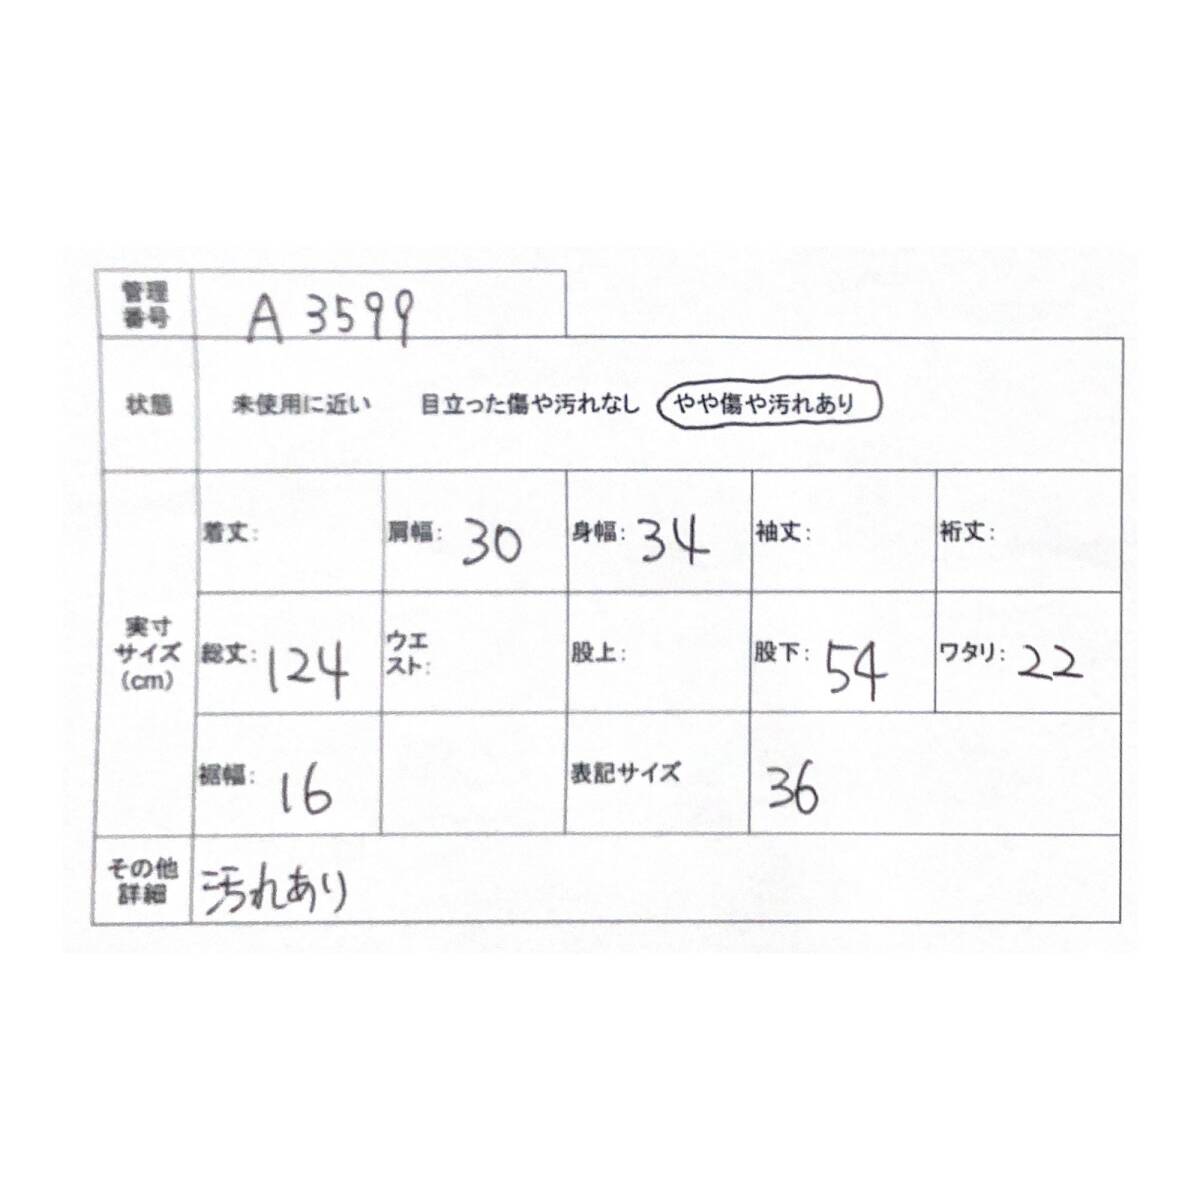 管理番号 A 3599
状態 未使用に近い 目立った傷や汚れなし やや傷や汚れあり
実寸サイズ(cm)
着丈: 肩幅: 30 身幅: 34 袖丈: 裄丈:
総丈: 124 ウエスト: 股上: 股下: 54 ワタリ: 22
裾幅: 16 表記サイズ 36
その他詳細 汚れあり